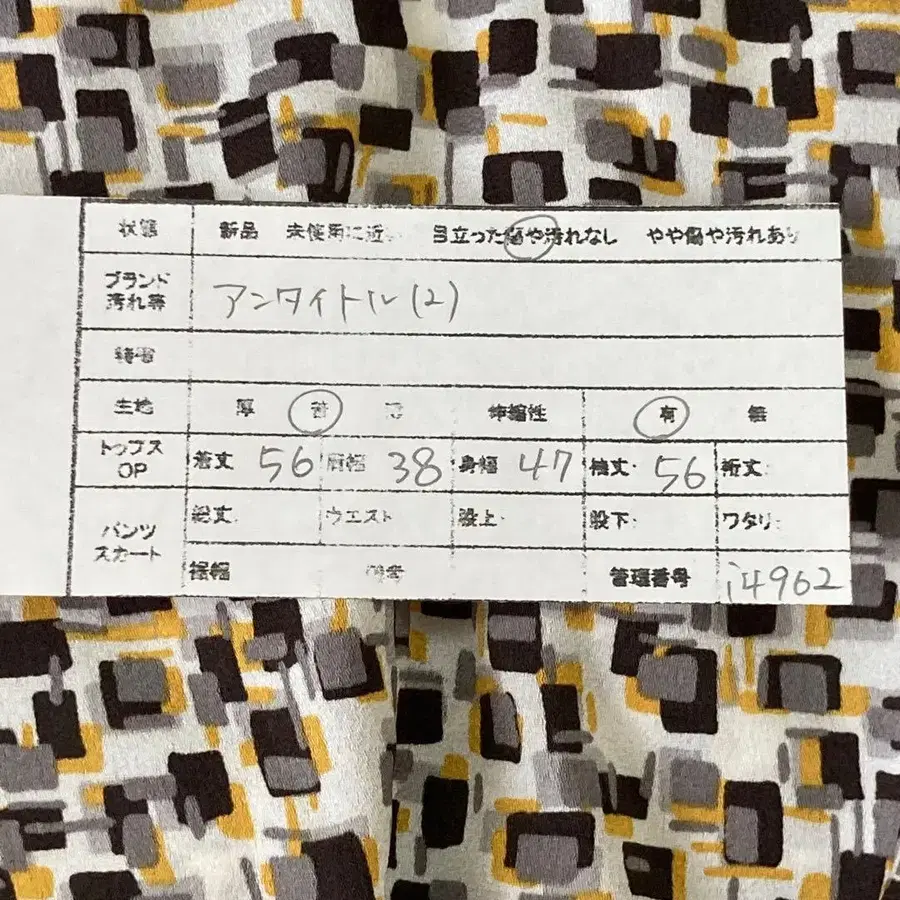 状態 新品 未使用に近い 目立った傷や汚れなし やや傷や汚れあり
ブランド 汚れ等 アンタイトル(2)
特徴
生地 厚 普 薄 伸縮性 有 無
トップス OP 着丈 56 肩幅 38 身幅 47 袖丈: 56 裄丈:
パンツ スカート 総丈: ウエスト 股上: 股下: ワタリ:
裾幅 備考 管理番号 i4962